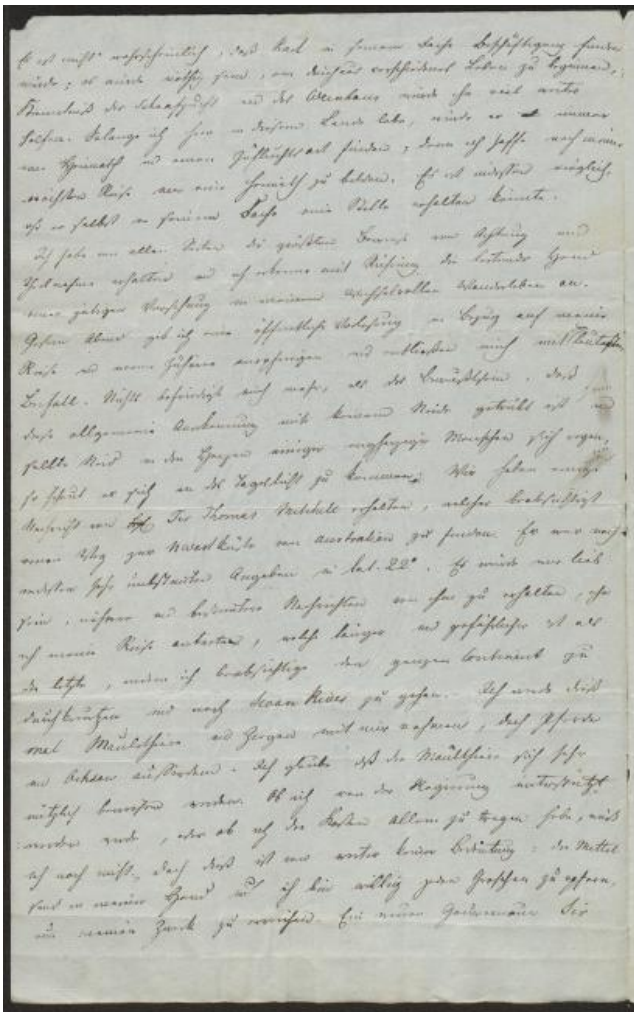 Es ist nicht wahrscheinlich, daß Karl in seinem Fache Beschäftigung finden
würde; es würde nöthig sein, ein durchaus verschiedenes Leben zu beginnen,
Kenntniß der Schaafzucht und des Weinbaus würde ihm viel weiter
helfen. Solange ich hier in diesem Lande lebe, würde er immer
eine Heimath und einen Zufluchtsort finden; denn ich hoffe nach meiner
nächsten Reise mir eine Heimath zu bilden. Es ist indessen möglich,
daß er selbst in seinem Fache eine Stelle erhalten könnte.
Ich habe von allen Seiten die größten Beweise von Achtung und
Theilnahme erhalten und ich erkenne mit Rührung die leitende Hand
einer gütigen Vorsehung in meinem wechselvollen Wanderleben an.
Gestern Abend gab ich eine öffentliche Vorlesung in Bezug auf meine
Reise und meine Zuhörer empfingen und entließen mich mit
Beifall. Nichts befriedigt mich mehr, als das Bewußtsein, daß
diese allgemeine Anerkennung mit keinem Neide getrübt ist und
sollte Neid in den Herzen einiger engherziger Menschen sich regen,
so scheut er sich an das Tageslicht zu kommen. Wir haben
Nachricht von Sir Thomas Mitchell erhalten, welcher beabsichtigt
einen Weg zur Nordküste von Australien zu finden. Er war nach
indessen sehr unbestimmten Angaben in lat. 22°. Es würde mir lieb
sein, nähere und bestimmtere Nachrichten von ihm zu erhalten, ehe
ich meine Reise antrete, welche länger und gefährlicher ist als
die letzte, indem ich beabsichtige den ganzen Continent zu
durchkreuzen und nach Swan River zu gehen. Ich werde dieß
mal Maulthiere und Ziegen mit mir nehmen, doch Pferde
und Ochsen außerdem. Ich glaube daß die Maulthiere sich sehr
nützlich beweisen werden. Ob ich von der Regierung unterstützt
werden werde, oder ob ich die Kosten allein zu tragen habe, weiß
ich noch nicht, doch dieß ist von weiter keiner Bedeutung: die Mittel
sind in meiner Hand und ich bin willig jeden Groschen zu opfern,
um meinen Zweck zu erreichen. Ein neuer Gouverneur Sir